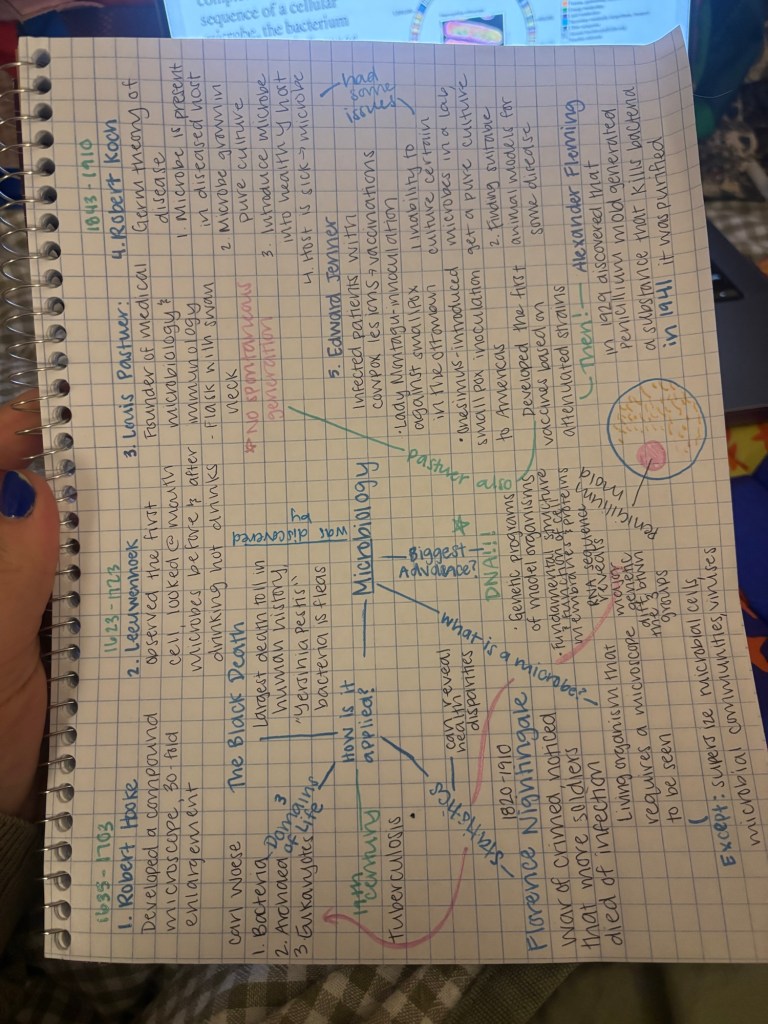 sequence of a cellular
microbe, the bacterium
1635-1703
1. Robert Hooke
Developed a compound
microscope, 30-fold
enlargement
1623-1723
2. Leeuwenhoek
observed the first
cell, looked @ mouth
microbes before & after
drinking hot drinks
3. Louis Pastuer:
Founder of medical
microbiology &
immunology
- Flask with swan
neck
☆ No spontaneous
generation
1843-1910
4. Robert Koch
Germ theory of
disease
1. Microbe is present
in diseased host
2 Microbe grown in
pure culture
3. Introduce microbe
into healthy host
4. Host is sick → microbe
had
some
issues
1 Inability to
culture certain
microbes in a lab,
get a pure culture
2. Finding suitable
animal models for
some disease
5. Edward Jenner
Infected patients with
cowpox lesions → vaccinations
• Lady Montagu-innoculation
against smallpox
in the Ottoman
• Onesimus-introduced
smallpox inoculation
to Americas
Pastuer also
Developed the first
vaccines based on
attenuated strains
Then!
Alexander Fleming
in 1929 discovered that
Penicillium mold generated
a substance that kills bacteria
in 1941 it was purified
Penicillium
mold
carl Woese
1. Bacteria
2. Archaea
3 Eukaryotes
3
Domains
of Life
The Black Death
Largest death toll in
human history
"Yersinia Pestis"
bacteria is fleas
was
discovered
by
Microbiology
How is it
applied?
19th
century
Tuberculosis
statistics
can reveal
health
disparities
Biggest
Advance?
☆
DNA!!!
• Genetic programs
of model organisms
• fundamental structure
& function of cell
membranes & proteins
RNA sequence
reveals
major
genetic
diff btwn
the 3
groups
What is a microbe?
Living organism that
requires a microscope
to be seen
Except: supersize microbial cells,
microbial communities, viruses
1820-1910
Florence Nightingale
War of Crimea noticed
that more soldiers
died of infection